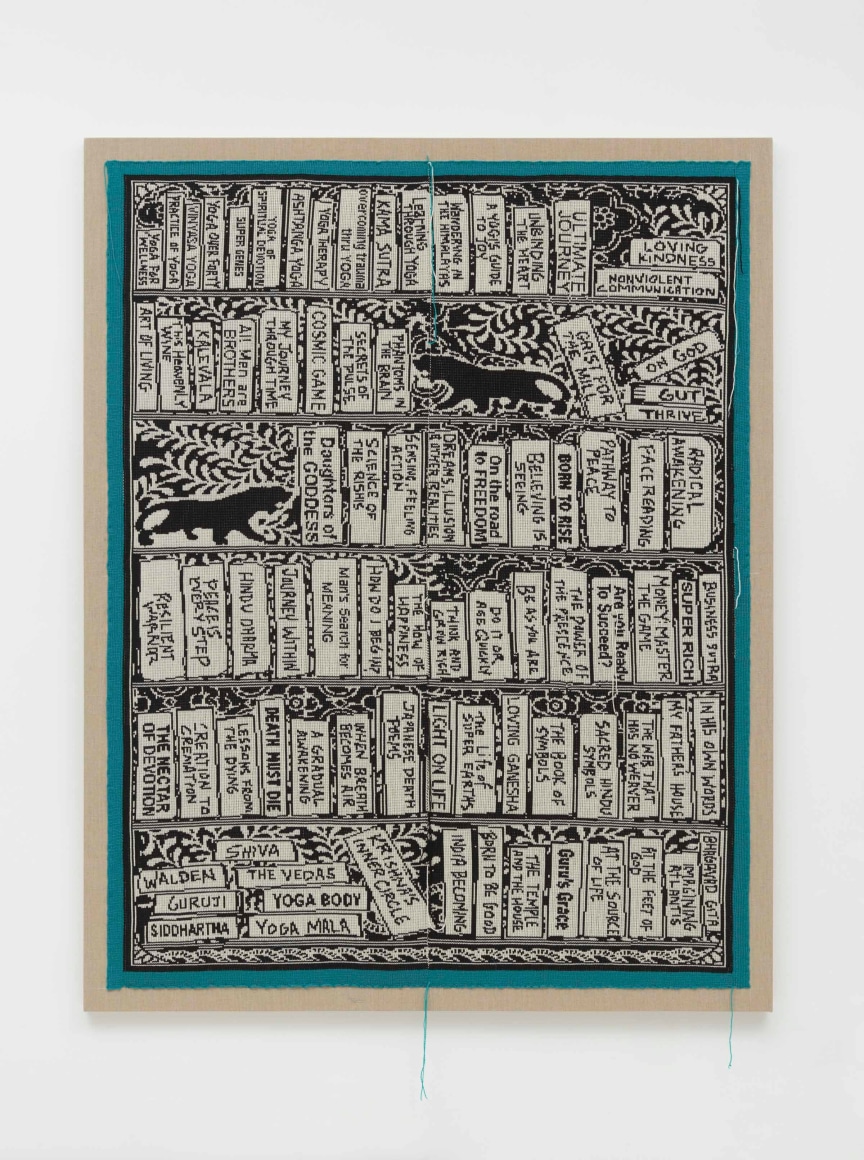 YOGA FOR
WELLNESS
PRACTICE OF YOGA
VINYASA YOGA
YOGA OVER FORTY
SUPER GENES
YOGA OF
SPIRITUAL DEVOTION
ASHTANGA YOGA
YOGA THERAPY
overcoming trauma
thru YOGA
KAMA SUTRA
LEARNING
THROUGH YOGA
WANDERING IN
THE HIMALAYAS
A YOGI'S GUIDE
TO JOY
UNBINDING
THE HEART
ULTIMATE
JOURNEY
LOVING
KINDNESS
NONVIOLENT
COMMUNICATION
ART OF LIVING
THIS HEAVENLY
WINE
KALEVALA
All Men are
BROTHERS
MY JOURNEY
THROUGH TIME
COSMIC GAME
SECRETS OF
THE PULSE
PHANTOMS IN
THE BRAIN
GRIST FOR
THE MILL
OH GOD
E GUT
THRIVE
Daughters of
the GODDESS
SCIENCE OF
THE RISHIS
SENSING, FEELING
ACTION
DREAMS, ILLUSION
& OTHER REALITIES
On the road
to FREEDOM
BELIEVING IS
SEEING
BORN TO RISE
PATHWAY TO
PEACE
FACE READING
RADICAL
AWAKENING
RESILIENT
WARRIOR
PEACE IS
EVERY STEP
HINDU DHARMA
JOURNEY WITHIN
Man's Search for
MEANING
HOW DO I BEGIN?
THE HOW OF
HAPPINESS
THINK AND
GROW RICH
DO IT OR
AGE QUICKLY
BE AS YOU ARE
THE POWER OF
THE PRESENCE
Are you Ready
To Succeed?
MONEY: MASTER
THE GAME
SUPER RICH
BUSINESS SUTRA
THE NECTAR
OF DEVOTION
CREATION TO
CREMATION
LESSONS FROM
THE DYING
DEATH MUST DIE
A GRADUAL
AWAKENING
WHEN BREATH
BECOMES AIR
JAPANESE DEATH
POEMS
LIGHT ON LIFE
The Life of
SUPER EARTHS
LOVING GANESHA
THE BOOK OF
SYMBOLS
SACRED HINDU
SYMBOLS
THE WEB THAT
HAS NO WEAVER
MY FATHERS HOUSE
IN HIS OWN WORDS
SHIVA
WALDEN
THE VEDAS
GURUJI
YOGA BODY
SIDDHARTHA
YOGA MALA
KRISHNA'S
INNER CIRCLE
INDIA BECOMING
BORN TO BE GOOD
THE TEMPLE
AND THE HOUSE
Guru's Grace
AT THE SOURCE
OF LIFE
AT THE FEET OF
GOD
IMAGINING
ATLANTIS
BHAGAVAD GITA